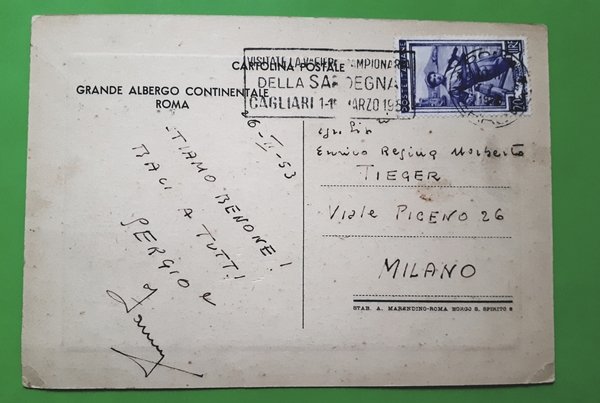 CARTOLINA POSTALE
GRANDE ALBERGO CONTINENTALE
ROMA
VISITATE LA FIERA CAMPIONARIA
DELLA SARDEGNA
CAGLIARI 1-1 MARZO 195
26-II-53
STIAMO BENONE!
BACI A TUTTI
SERGIO e
Enrico Regina Norberto
TIEGER
Viale PICENO 26
MILANO
STAB. A. MARENDINO-ROMA BORGO S. SPIRITO 8